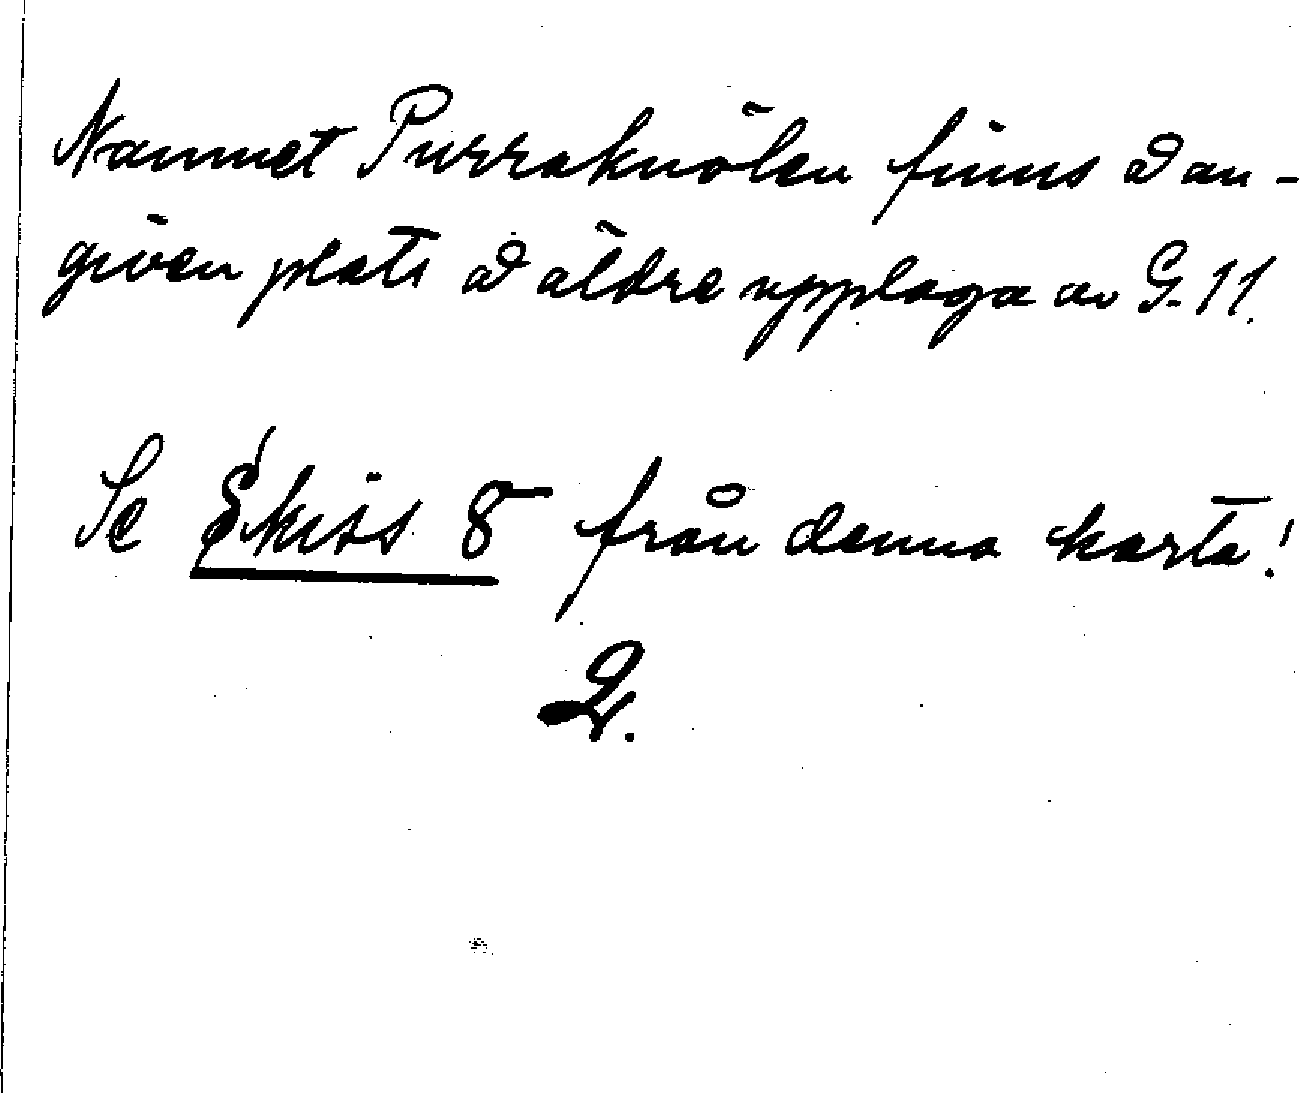 Namnet Purraknölen finns å an-
given plats å äldre upplaga av G. 11.
Se Skiss 8 från denna karta!
2.